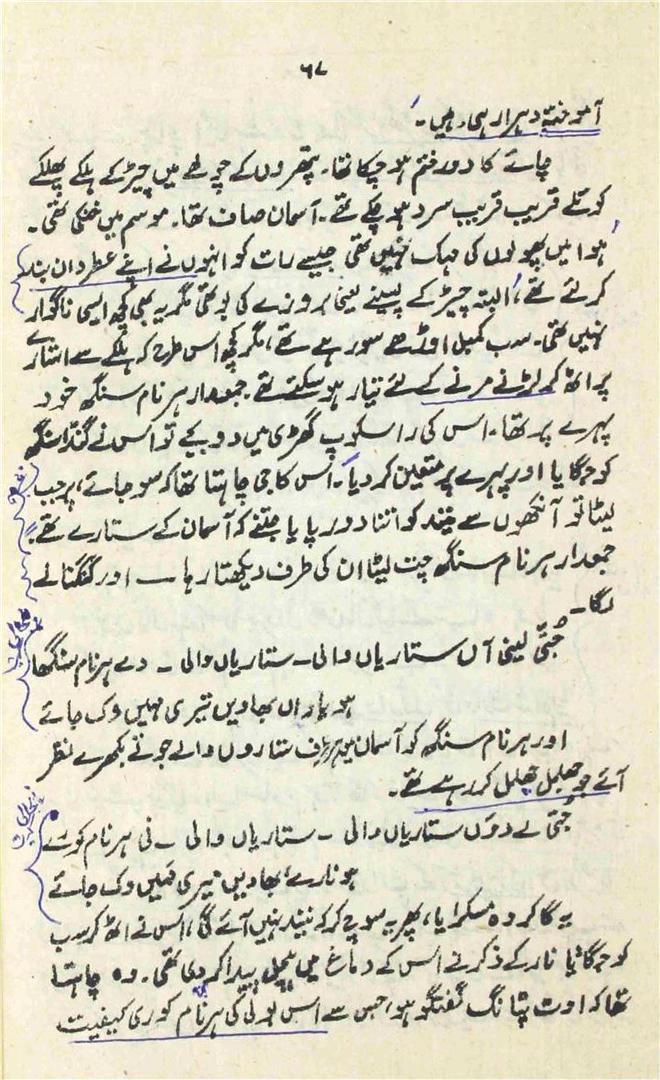 ۶۷
آموختہ دہرا رہی ہیں۔
چائے کا دور ختم ہو چکا تھا۔ پتھروں کے چولھے میں چیڑ کے ہلکے پھلکے
کوئلے قریب قریب سرد ہو چکے تھے۔ آسمان صاف تھا۔ موسم میں خنکی تھی۔
ہوا میں پھولوں کی مہک نہیں تھی جیسے رات کو انہوں نے اپنے عطر دان بند
کر لئے تھے، البتہ چیڑ کے پسینے یعنی بروزے کی بو تھی مگر یہ بھی کچھ ایسی ناگوار
نہیں تھی۔ سب کمبل اوڑھے سو رہے تھے، مگر کچھ اس طرح کہ ہلکے سے اشارے
پر اٹھ کر لڑنے مرنے کے لئے تیار ہو سکتے تھے۔ جمعدار ہرنام سنگھ خود
پہرے پر تھا۔ اس کی راسکوپ گھڑی میں دو بجے تو اس نے گنڈا سنگھ
کو جگایا اور پہرے پر متعین کر دیا۔ اس کا جی چاہتا تھا کہ سو جائے، پر جب
لیٹا تو آنکھوں سے نیند کو اتنا دور پایا جتنے کہ آسمان کے ستارے تھے۔
جمعدار ہرنام سنگھ چت لیٹا ان کی طرف دیکھتا رہا ــ اور گنگنانے
لگا۔
جُتّی لینی آں ستاریاں والی ۔ ستاریاں والی ۔ دے ہرنام سنگھا
ہو یاراں بھاویں تیری مہیں وک جائے
اور ہرنام سنگھ کو آسمان میں ہر طرف ستاروں والے جوتے بکھرے نظر
آئے جو جھلمل جھلمل کر رہے تھے۔
جتی لے دوں ستاریاں والی ۔ ستاریاں والی ۔ نی ہرنام کورے
ہو نارے، بھاویں میری مہیں وک جائے
یہ گا کر وہ مسکرایا، پھر یہ سوچ کر کہ نیند نہیں آئے گی، اس نے اٹھ کر سب
کو جگا دیا نار کے ذکر نے اس کے دماغ میں ہلچل پیدا کر دی تھی۔ وہ چاہتا
تھا کہ اوٹ پٹانگ گفتگو ہو، جس سے اس بولی کی ہرنام کوری کیفیت